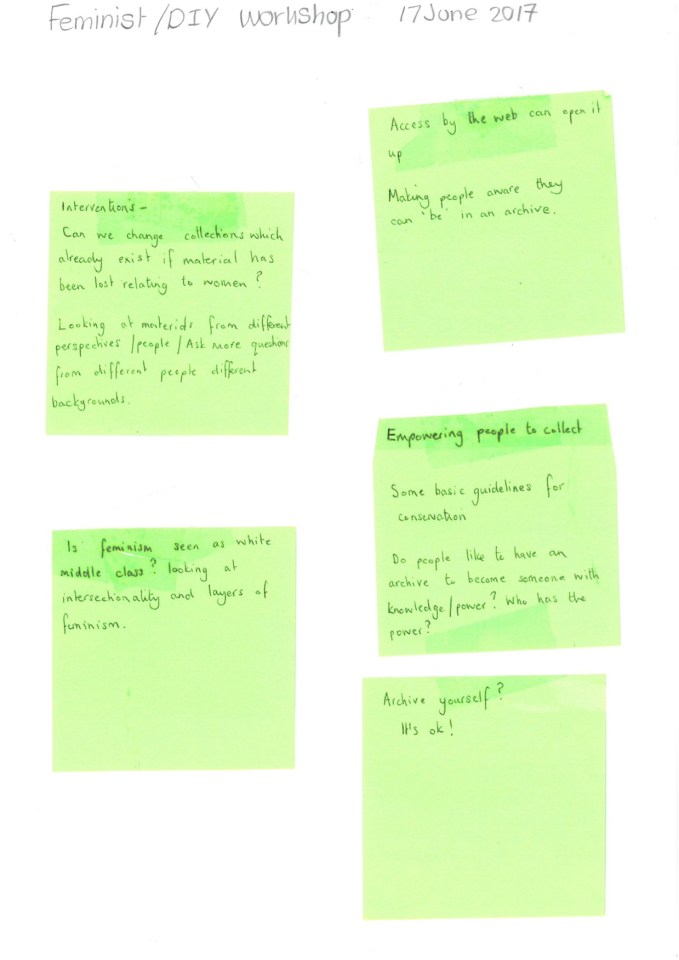 Feminist/DIY Workshop 17 June 2017
Interventions -
Can we change collections which
already exist if material has
been lost relating to women?
Looking at materials from different
perspectives/people/Ask more questions
from different people different
backgrounds.
Is feminism seen as white
middle class? looking at
intersectionality and layers of
feminism.
Access by the web can open it
up
Making people aware they
can 'be' in an archive.
Empowering people to collect
Some basic guidelines for
conservation
Do people like to have an
archive to become someone with
knowledge/power? Who has the
power?
Archive yourself?
It's ok!